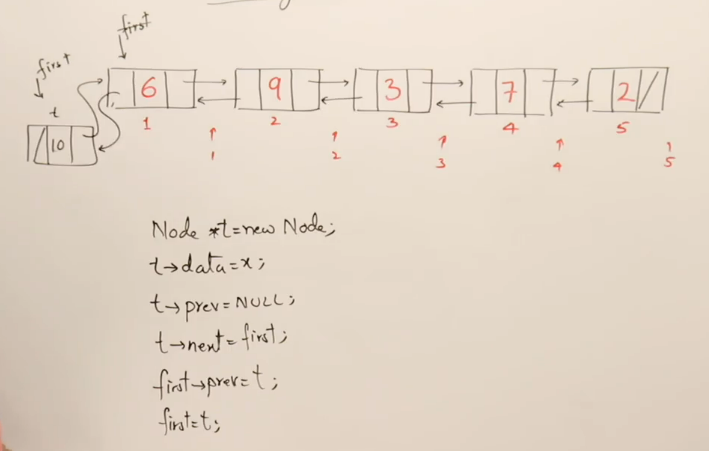 first
first
t
6 9 3 7 2
10
1 2 3 4 5
1 2 3 4 5
Node *t=new Node;
t→data=x;
t→prev=NULL;
t→next=first;
first→prev=t;
first=t;